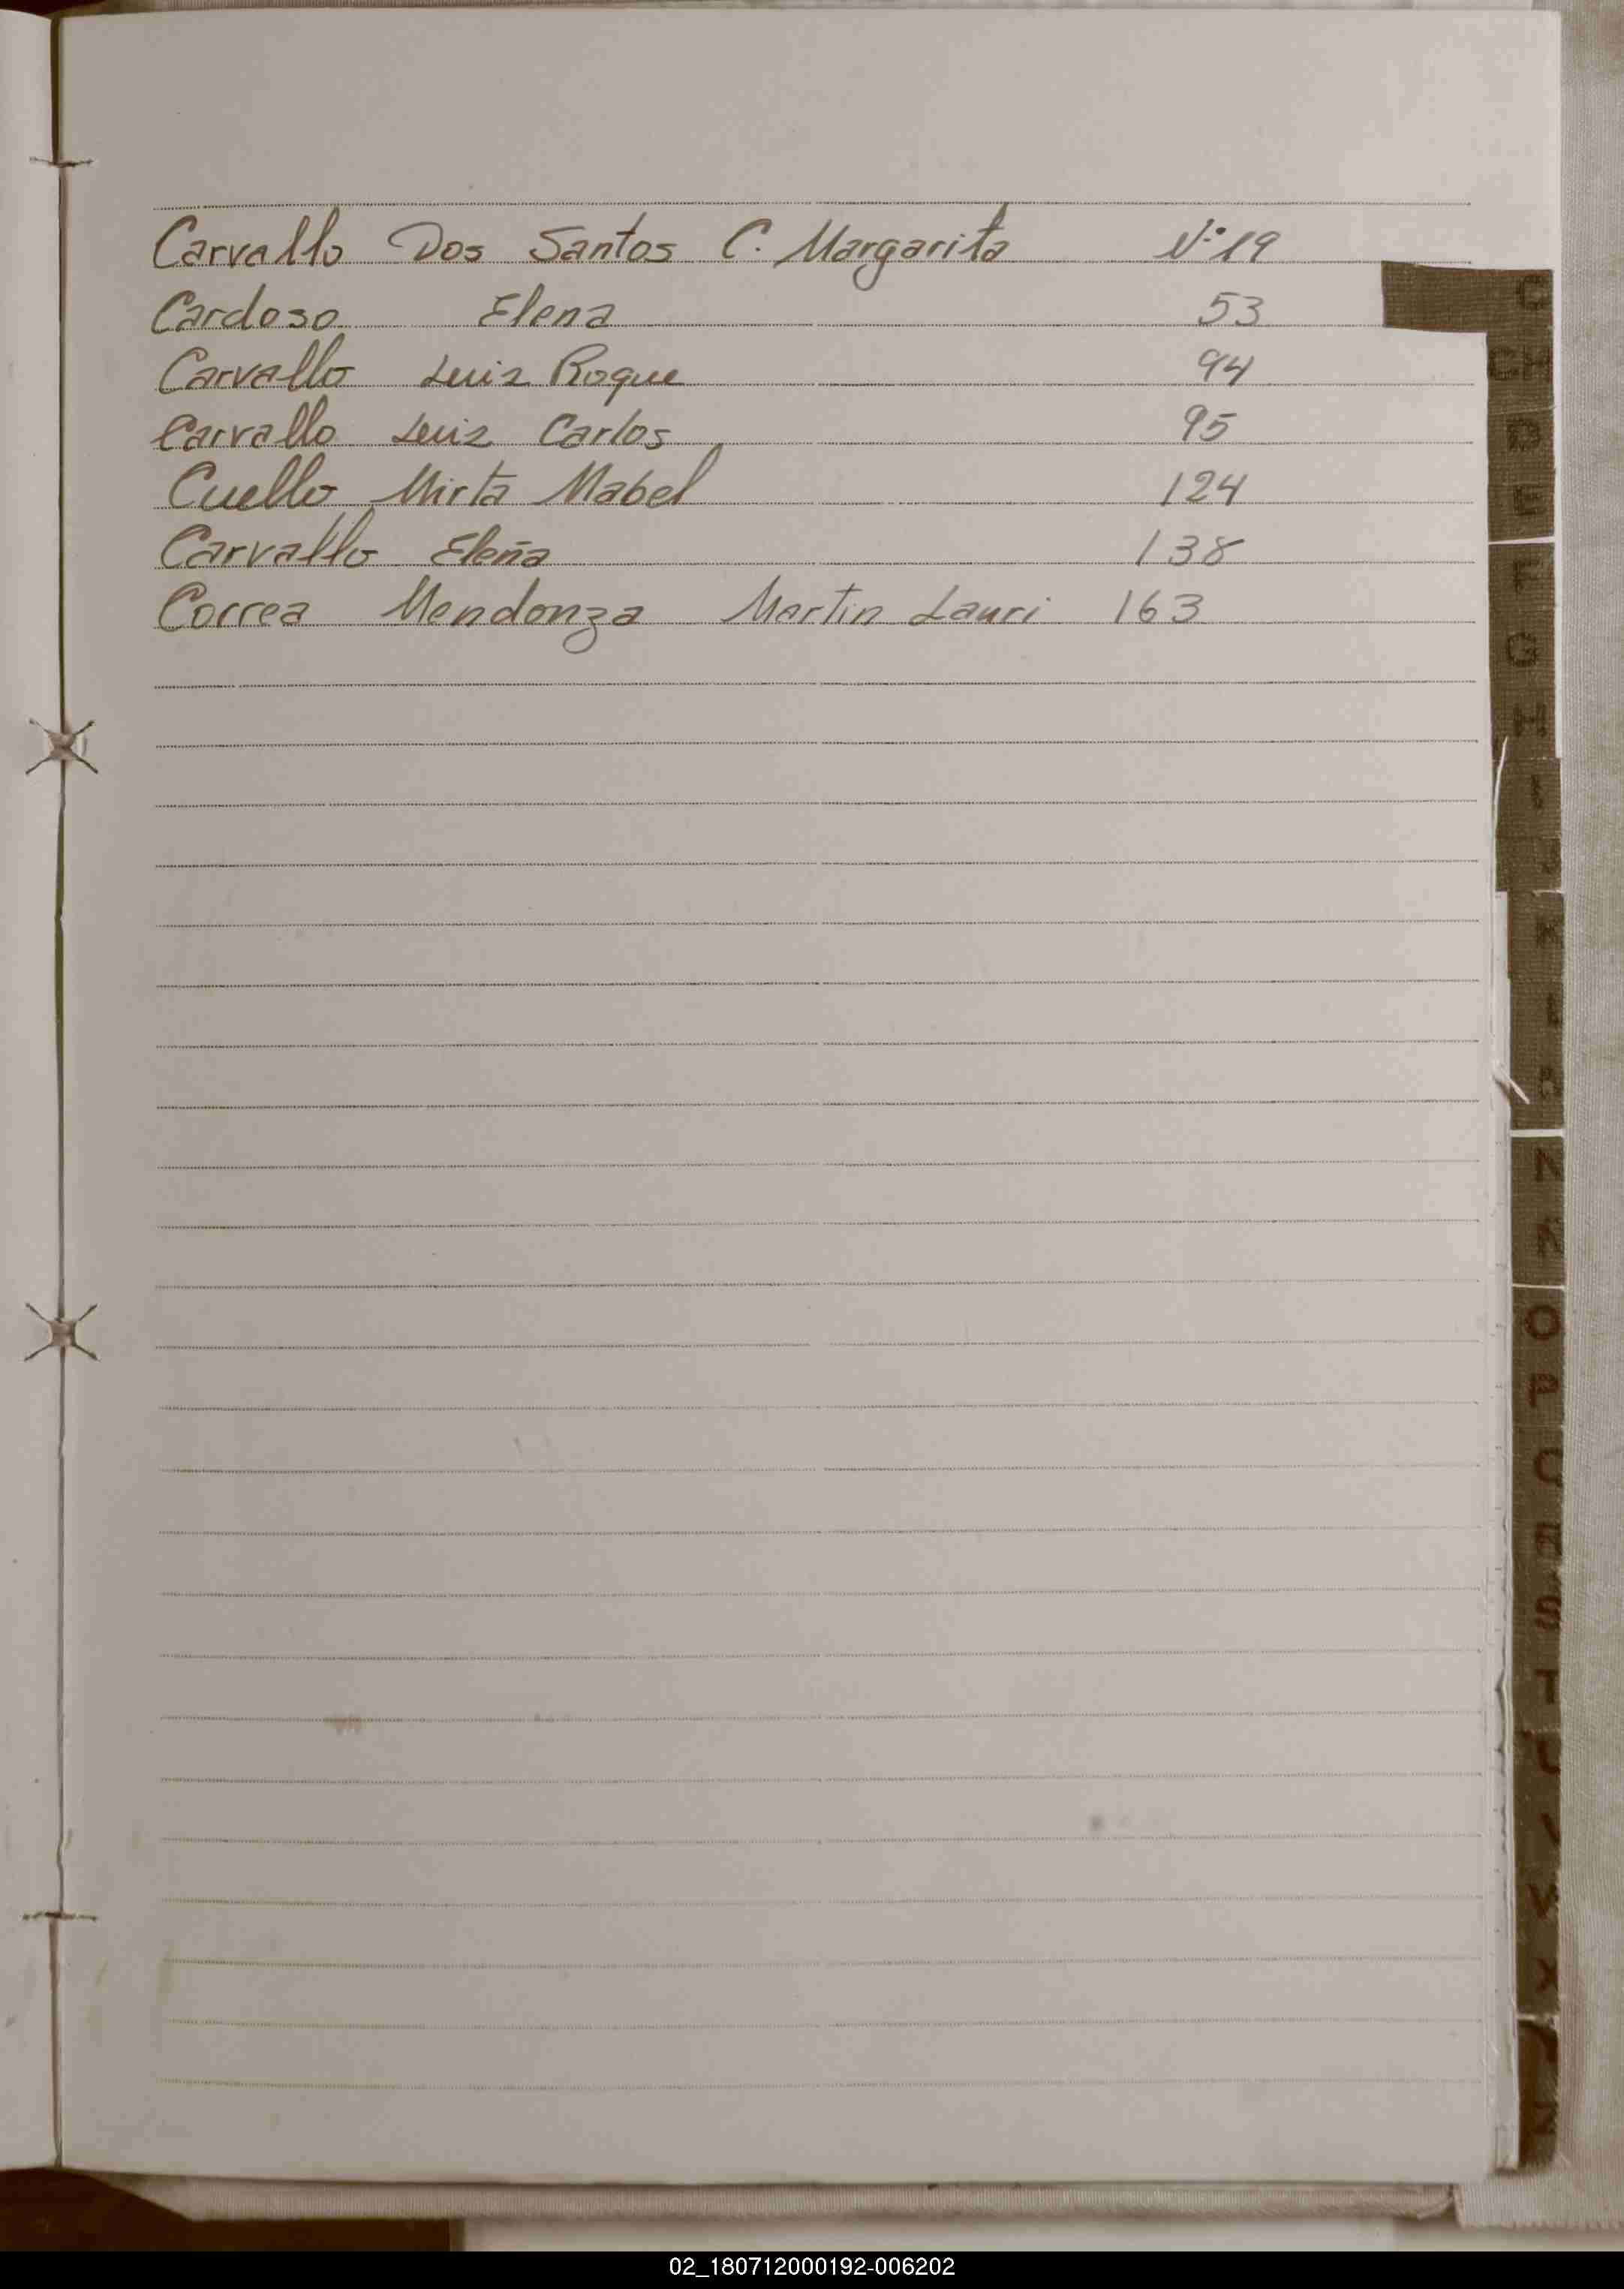 Carvallo Dos Santos C. Margarita Nº 19
Cardoso Elena 53
Carvallo Luiz Roque 94
Carvallo Luiz Carlos 95
Cuello Mirta Mabel 124
Carvallo Elena 138
Correa Mendonza Martin Lauri 163
C
CH
D
E
F
G
H
I
J
K
L
N
Ñ
O
P
Q
R
S
T
U
V
X
Z
02_180712000192-006202